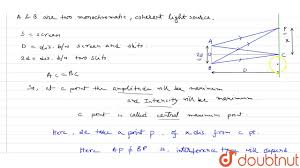 A & B are two monochromatic, coherent light source.
S = screen
D = dis. b/w screen and slits.
2d = dis. b/w two slits.
AC = BC
So, at c point the amplitude will be maximum
are Intensity will be maximum
c point is called central maximum point.
Here, we take a point p. of x dis from c pt.
Here AP ≠ BP is interference then will depend
A
B
2d
P
x
C
D
S
doubtnut